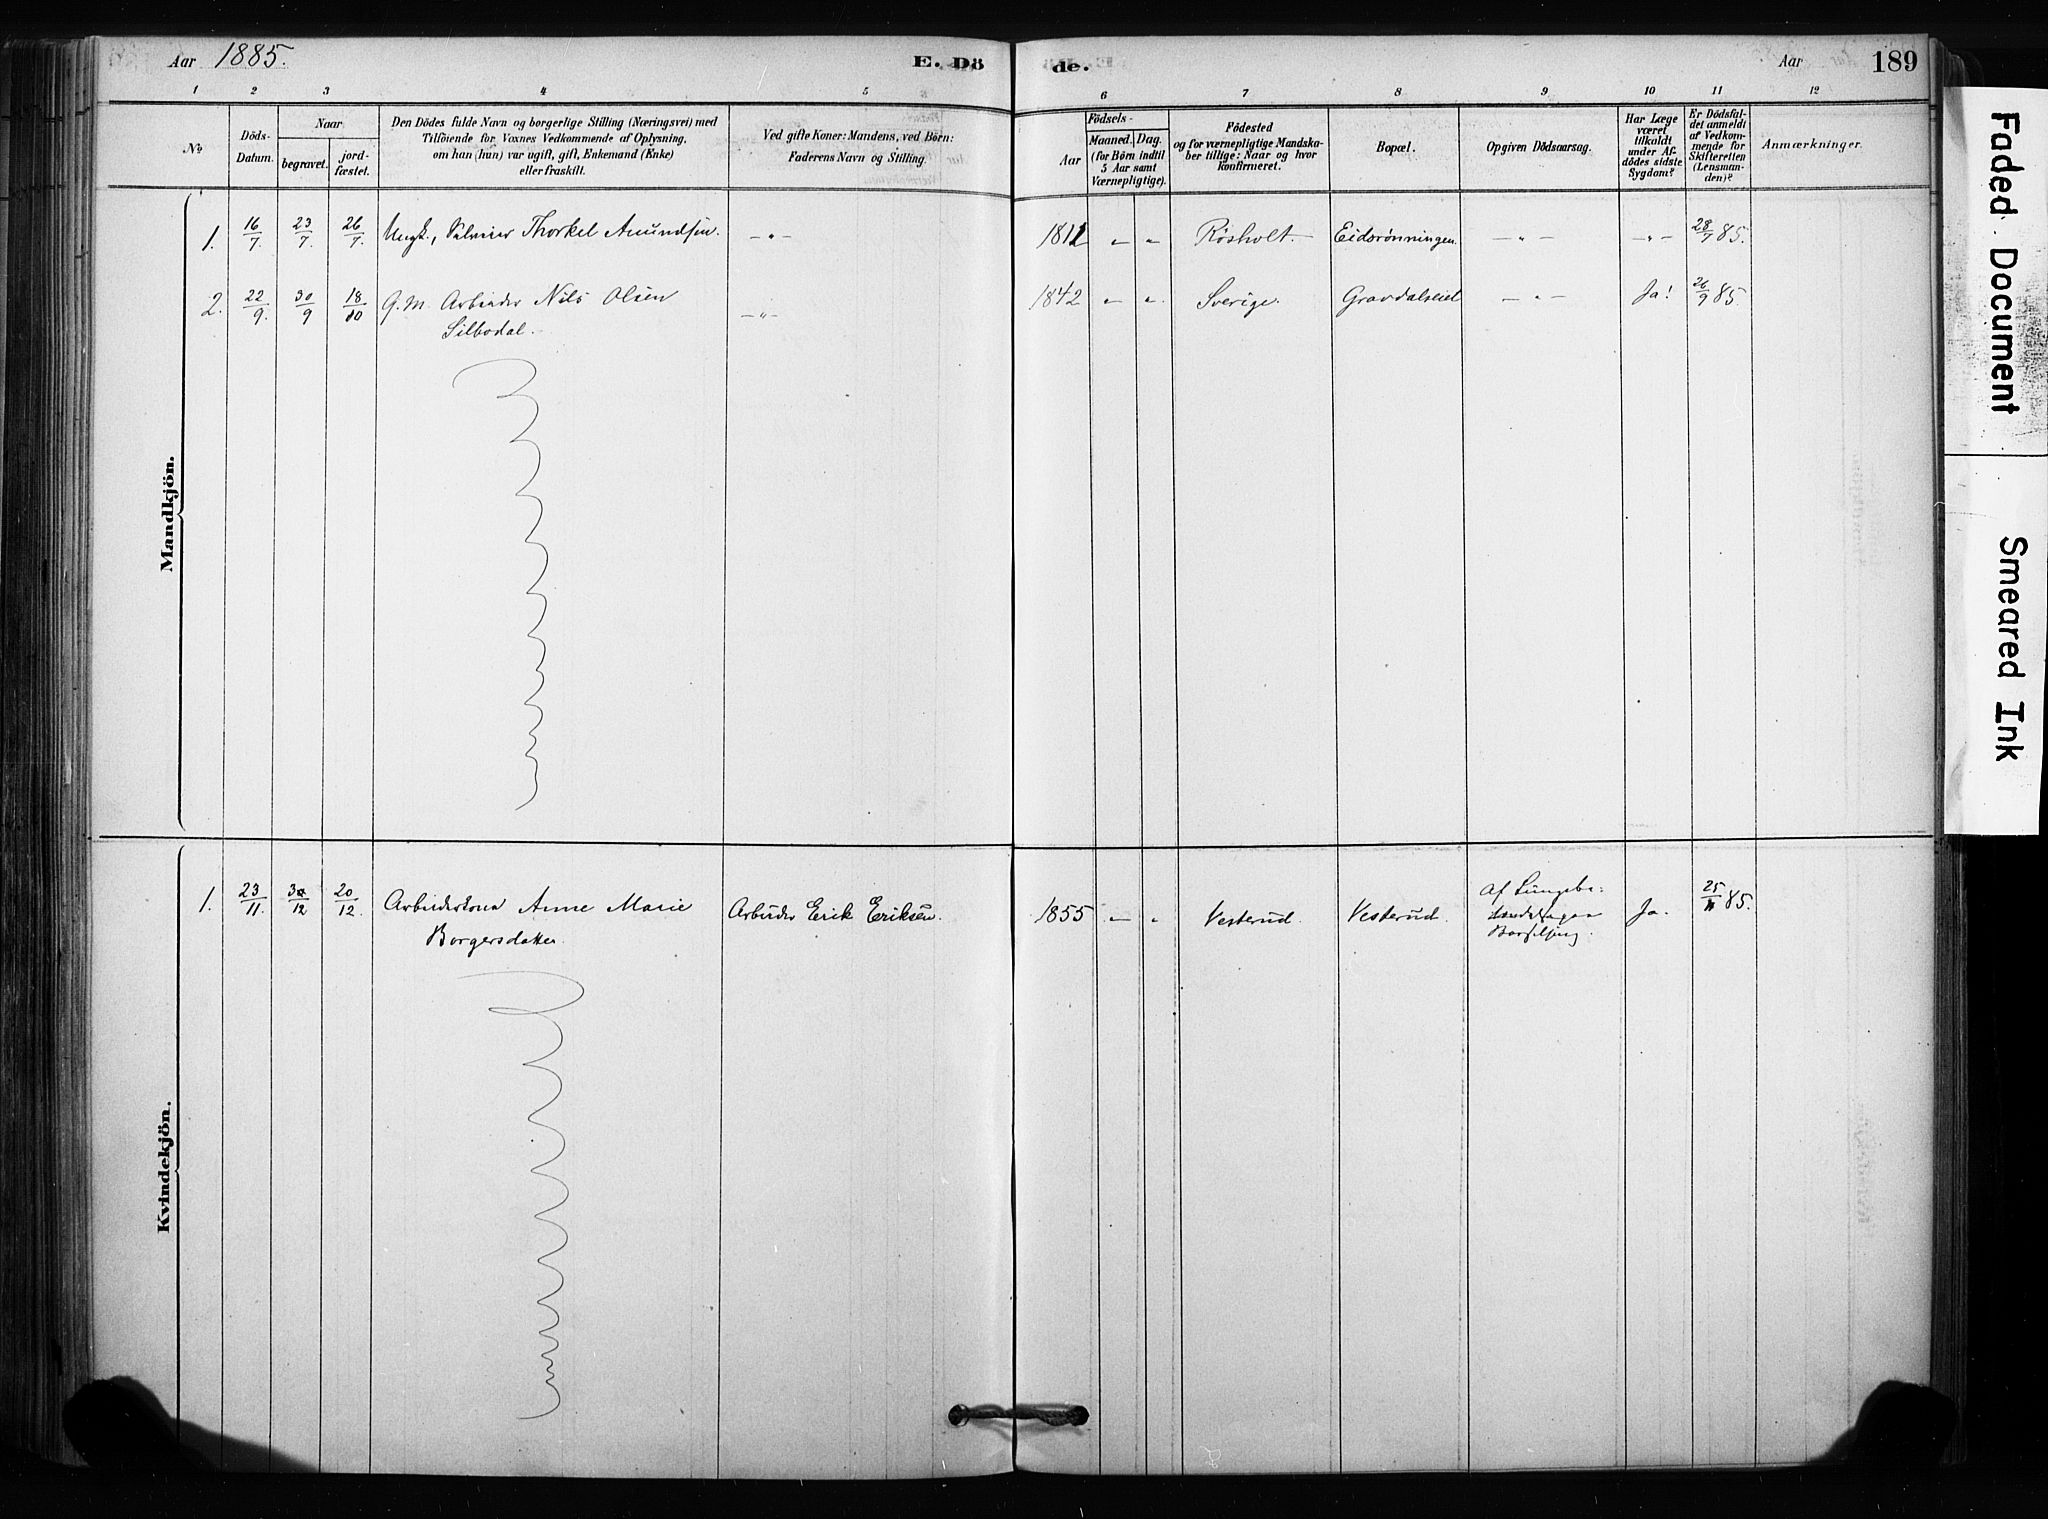 Aar 1885.
E. Dö de.
Aar
189
1 2 3 4 5 6 7 8 9 10 11 12
No
Döds-
Datum.
Naar
begravet.
jord-
fæstet.
Den Dödes fulde Navn og borgerlige Stilling (Næringsvei) med
Tilföiende for Voxnes Vedkommende af Oplysning,
om han (hun) var ugift, gift, Enkemand (Enke)
eller fraskilt.
Ved gifte Koner: Mandens, ved Börn:
Faderens Navn og Stilling.
Födsels-
Aar
Maaned. Dag.
(for Börn indtil
5 Aar samt
Værnepligtige).
Födested
og for værnepligtige Mandska-
ber tillige: Naar og hvor
konfirmeret.
Bopæl.
Opgiven Dödsaarsag.
Har Læge
været
tilkaldt
under Af-
dödes sidste
Sygdom?
Er Dödsfal-
det anmeldt
af Vedkom-
mende for
Skifteretten
(Lensman-
den)?
Anmærkninger.
Mandkjön.
1. 16/7 23/7. 26/7. Ungk., Thorkel Amundsen. —〃— 1812 〃 〃 Rösholt. Eidsrønningen. —〃— —〃— 28/7 85.
2. 22/9. 30/9 18/10 G.M. Arbeider Nils Olsen —〃— 1842 〃 〃 Sverige. Gravdalseiet —〃— Ja! 26/9 85.
Silbodal.
Kvindekjön.
1. 23/11. 30/12 20/12. Arbeiderkona Anne Marie Arbeider Erik Eriksen. 1855 〃 〃 Vesterud. Vesterud. Af Lungebe= Ja. 25/11 85.
Borgersdatter
Faded Document
Smeared Ink